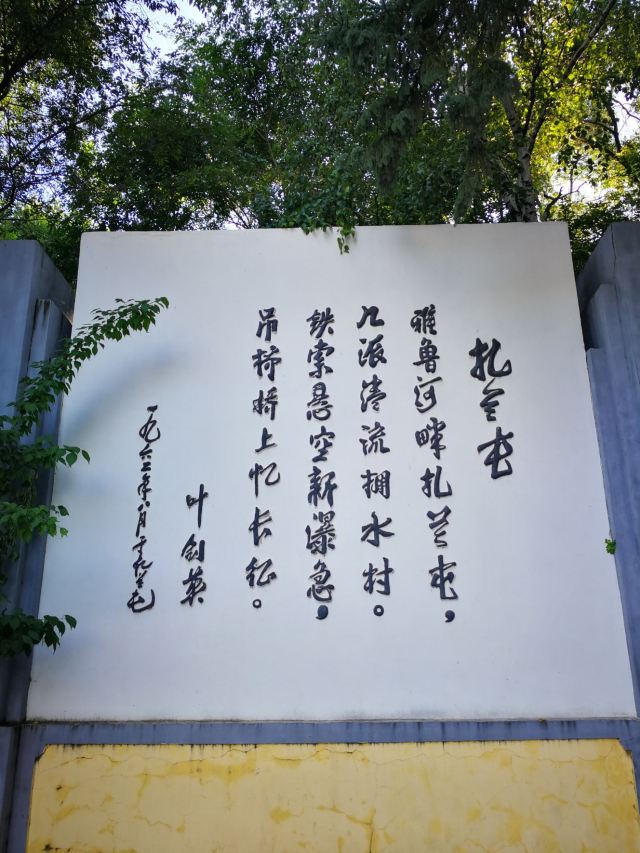 扎兰屯
雅鲁河畔扎兰屯，
几派清流拥水村。
铁索悬空新瀑急，
吊桥桥上忆长征。
叶剑英
一九六二年八月于扎兰屯